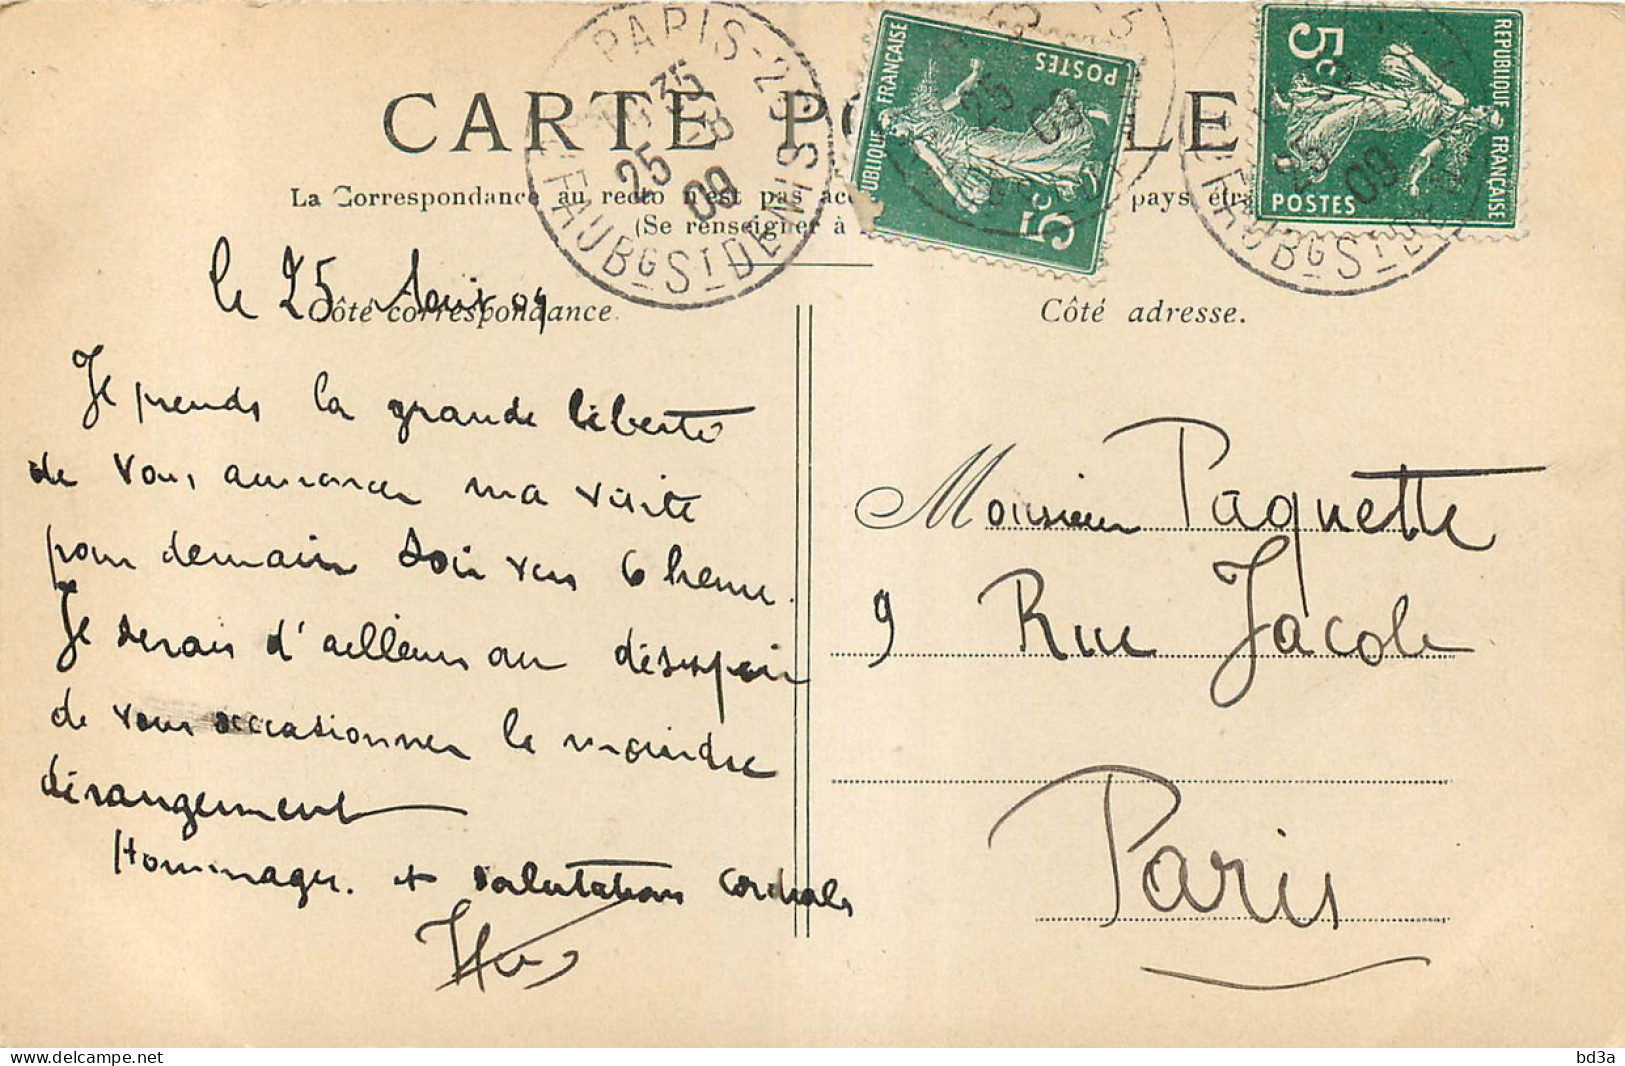 CARTE PO LE
La Correspondance au recto n'est pas acc pays étra
(Se renseigner à
PARIS-25
35
25 -8
09
FAUBG ST DENIS
RÉPUBLIQUE FRANÇAISE
POSTES
5c
25
09
RÉPUBLIQUE FRANÇAISE
POSTES
5c
25
09
FAUBG ST DENIS
Côté correspondance.
le 25 Aout 09
Je prends la grande liberté
de vous annoncer ma visite
pour demain soir vers 6 heure.
Je serais d'ailleurs au désespoir
de vous occasionner le moindre
dérangement
Hommages. et salutations cordiales
Côté adresse.
Monsieur Paquette
9 Rue Jacob
Paris
delcampe.net
bd3a